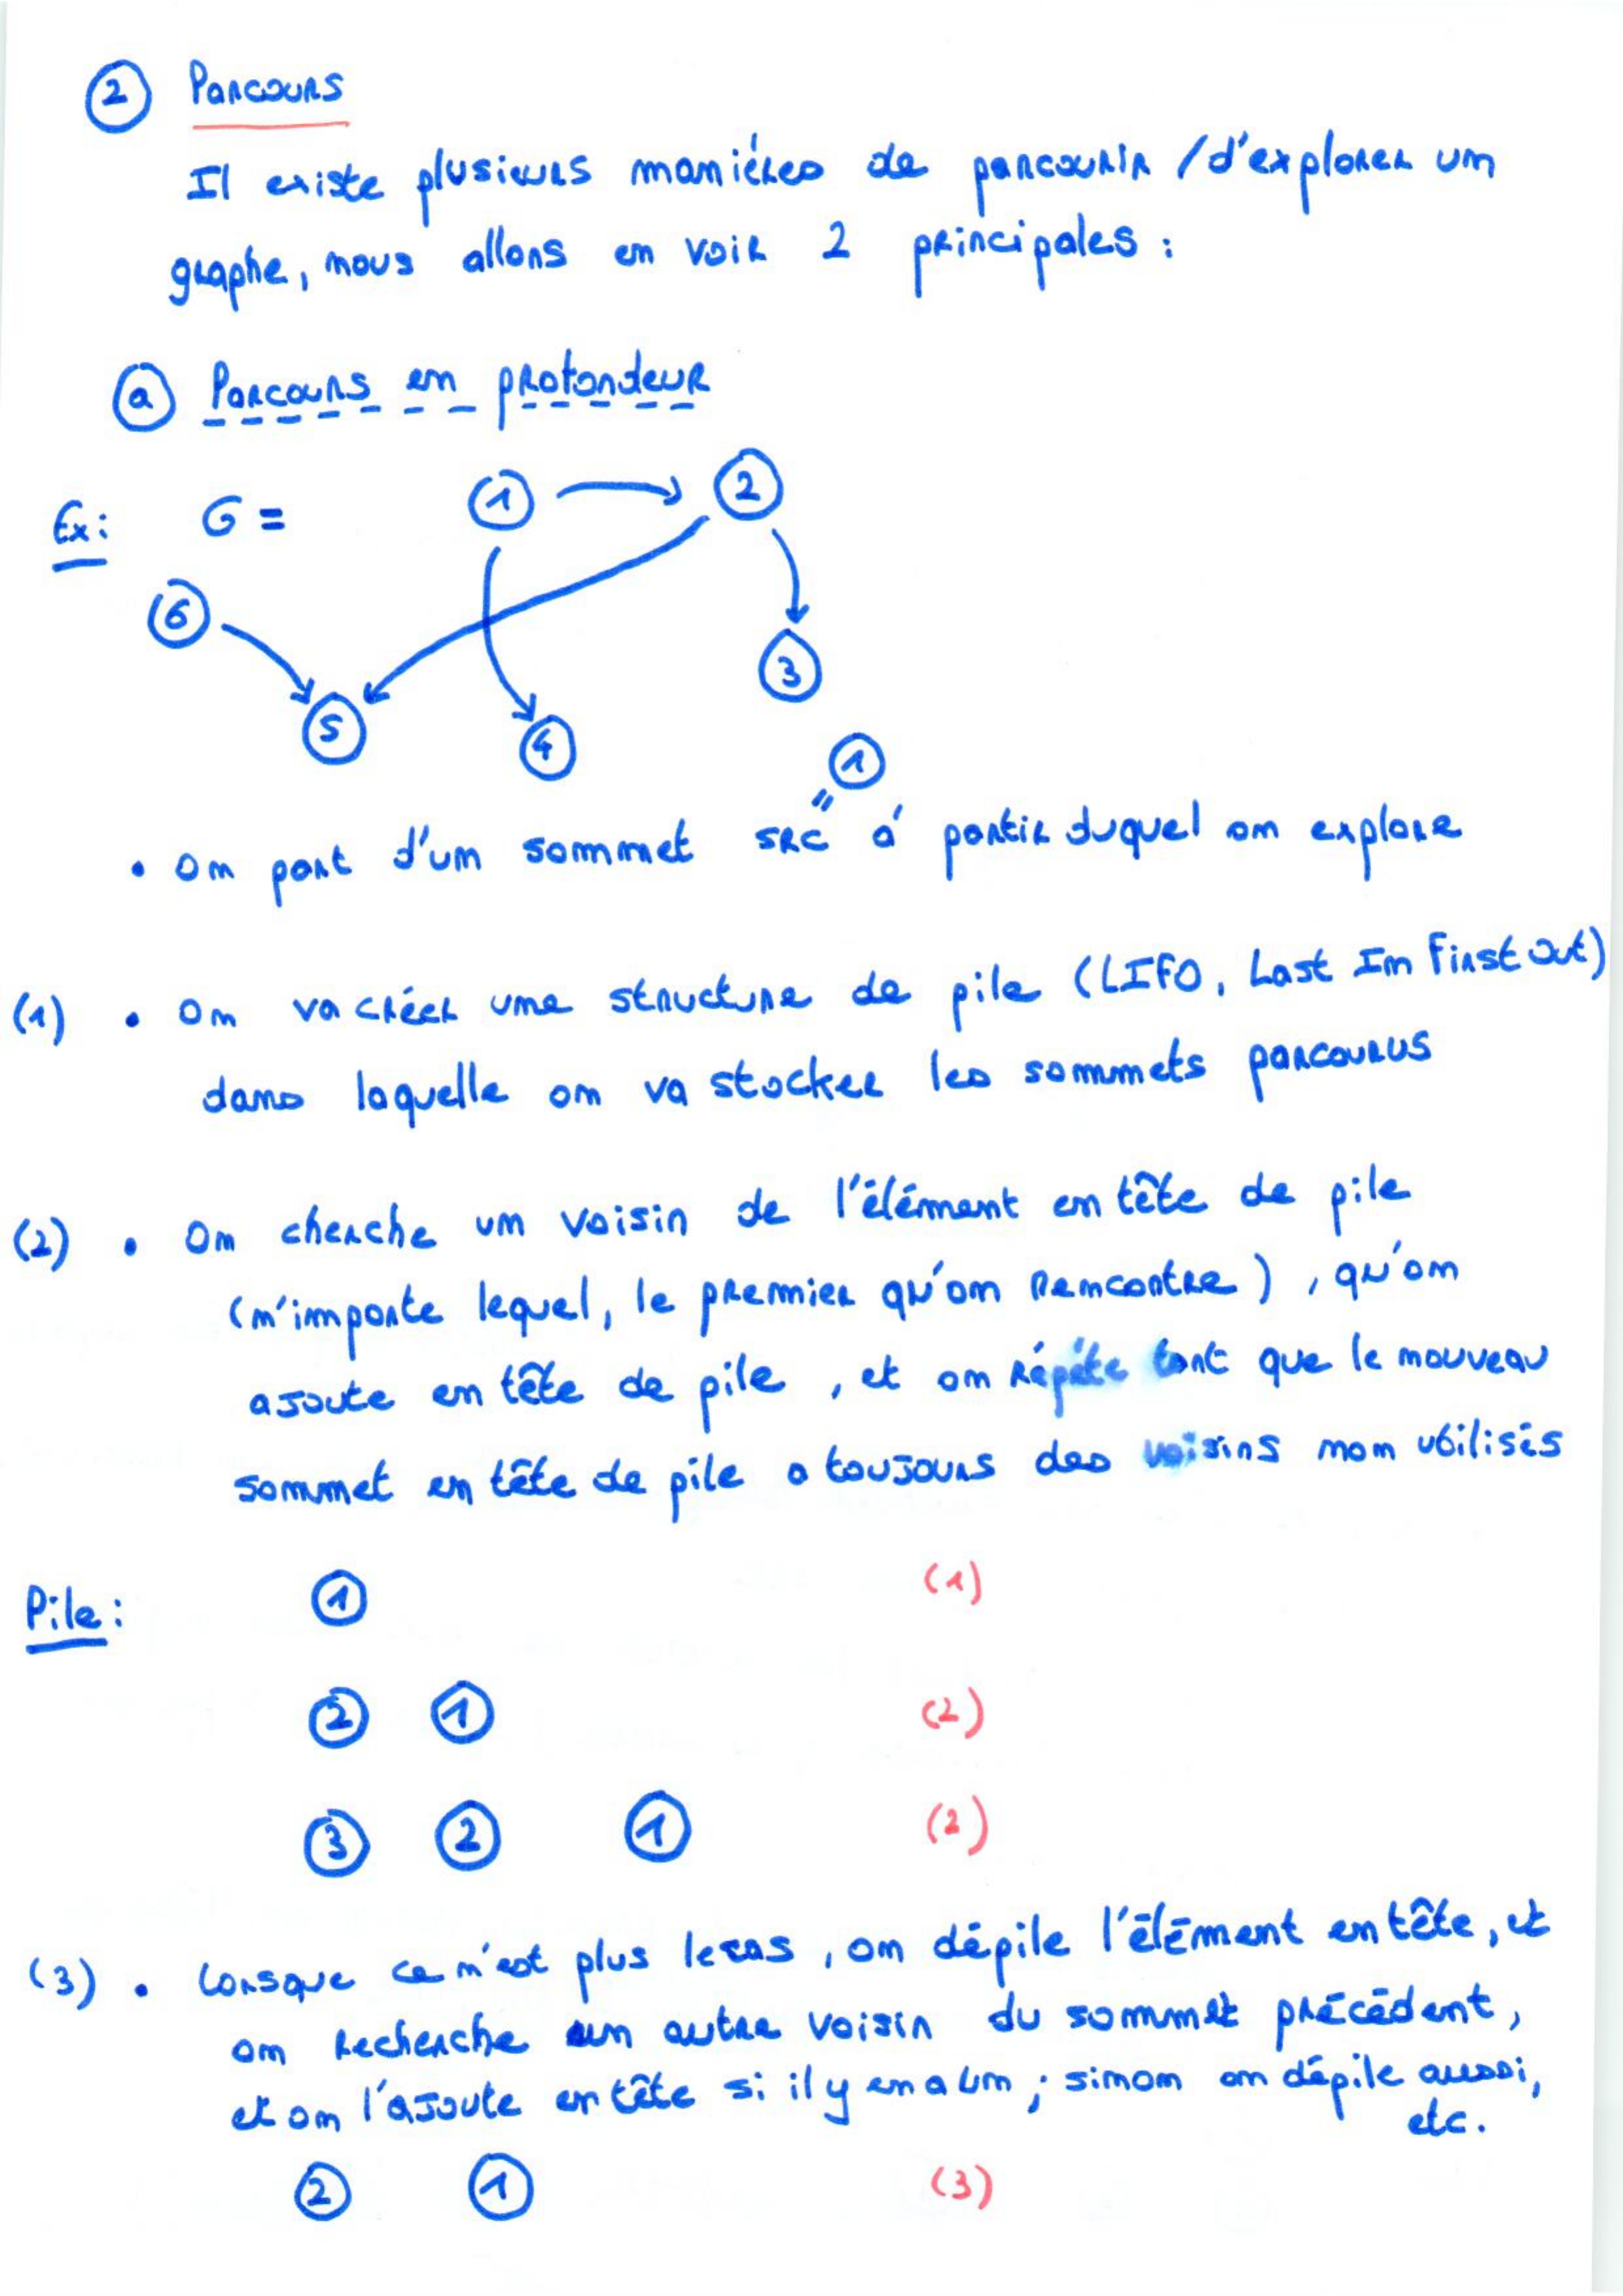 ② Parcours
Il existe plusieurs manières de parcourir / d'explorer un
graphe, nous allons en voir 2 principales :
ⓐ Parcours en profondeur
Ex : G = ① ②
⑥
③
⑤ ④
①
"
• On part d'un sommet src à partir duquel on explore
(1) • On va créer une structure de pile (LIFO, Last In First Out)
dans laquelle on va stocker les sommets parcourus
(2) • On cherche un voisin de l'élément en tête de pile
(n'importe lequel, le premier qu'on rencontre), qu'on
ajoute en tête de pile, et on répète tant que le nouveau
sommet en tête de pile a toujours des voisins non utilisés
Pile : ① (1)
② ① (2)
③ ② ① (2)
(3) • Lorsque ce n'est plus le cas, on dépile l'élément en tête, et
on recherche un autre voisin du sommet précédent,
et on l'ajoute en tête si il y en a un ; sinon on dépile aussi,
etc.
② ① (3)